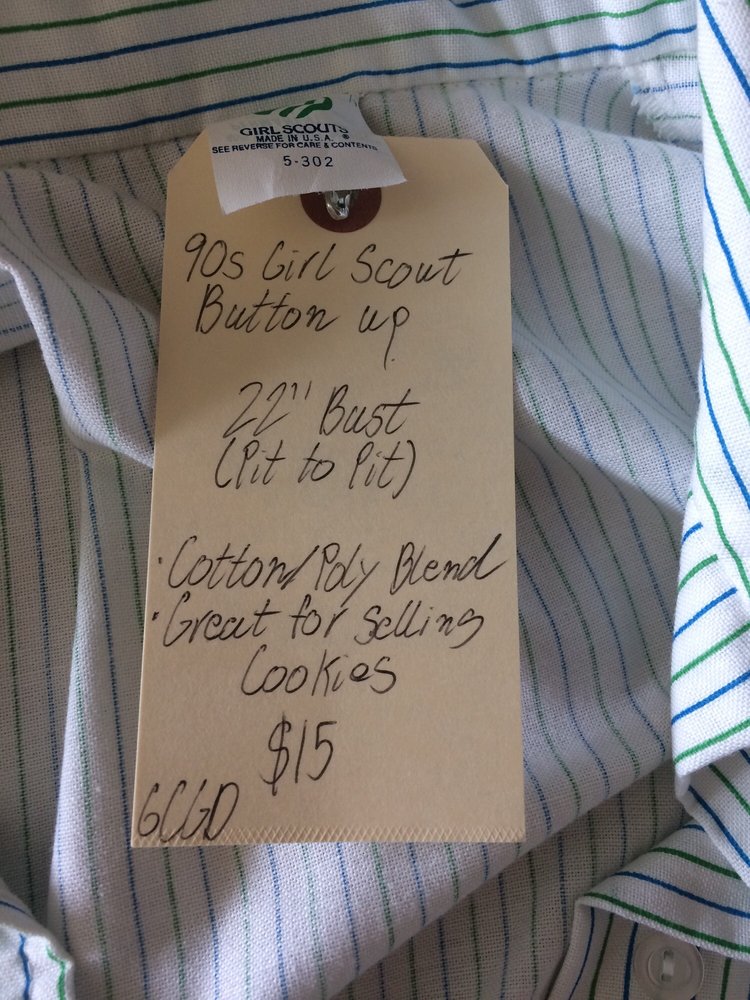 GIRL SCOUTS
MADE IN U.S.A. ®
SEE REVERSE FOR CARE & CONTENTS
5-302
90s Girl Scout
Button up
22" Bust
(Pit to Pit)
· Cotton/Poly Blend
· Great for Selling
Cookies
$15
GCGD